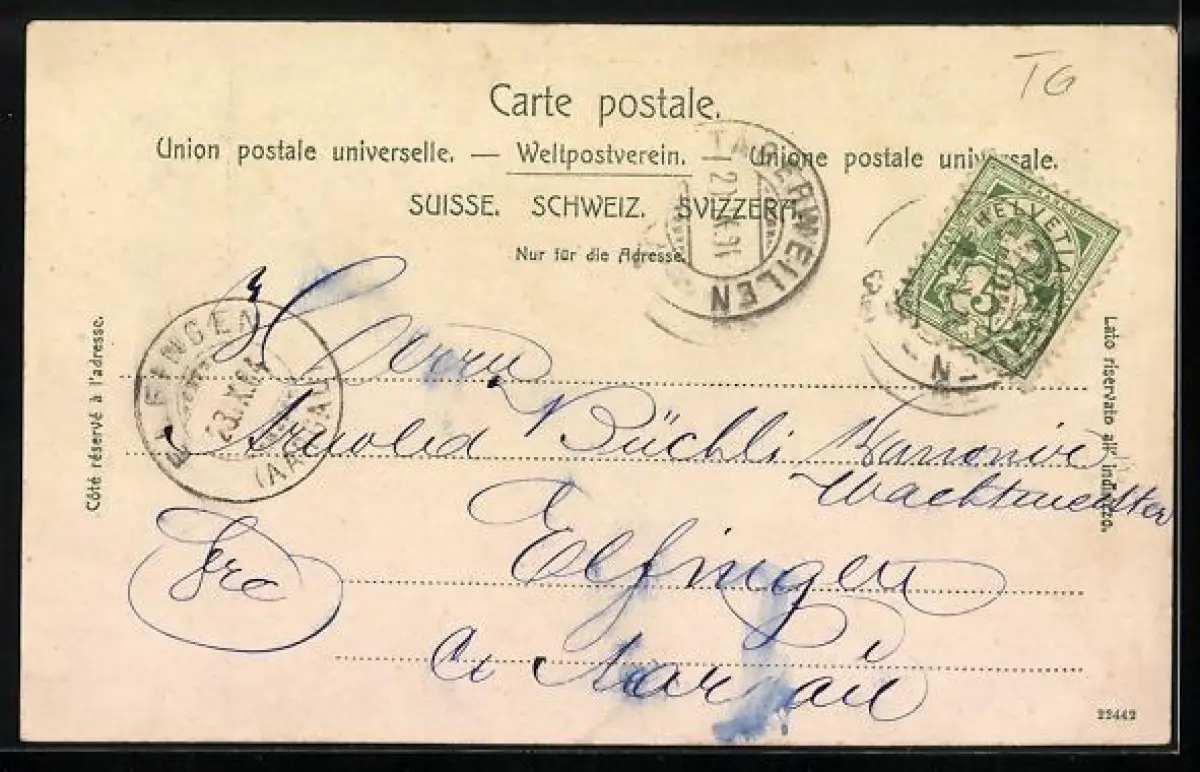 TG
Carte postale.
Union postale universelle. — Weltpostverein. — Unione postale universale.
SUISSE. SCHWEIZ. SVIZZERA.
Nur für die Adresse.
TAGERWEILEN
HELVETIA
5
Côté réservé à l'adresse.
Lato riservato all' indirizzo.
ELFINGEN
23.X.
(AARGAU)
Herrn
Arnold Büchli Kanonier
Wachtmeister
Elfingen
Ct Aargau
22442